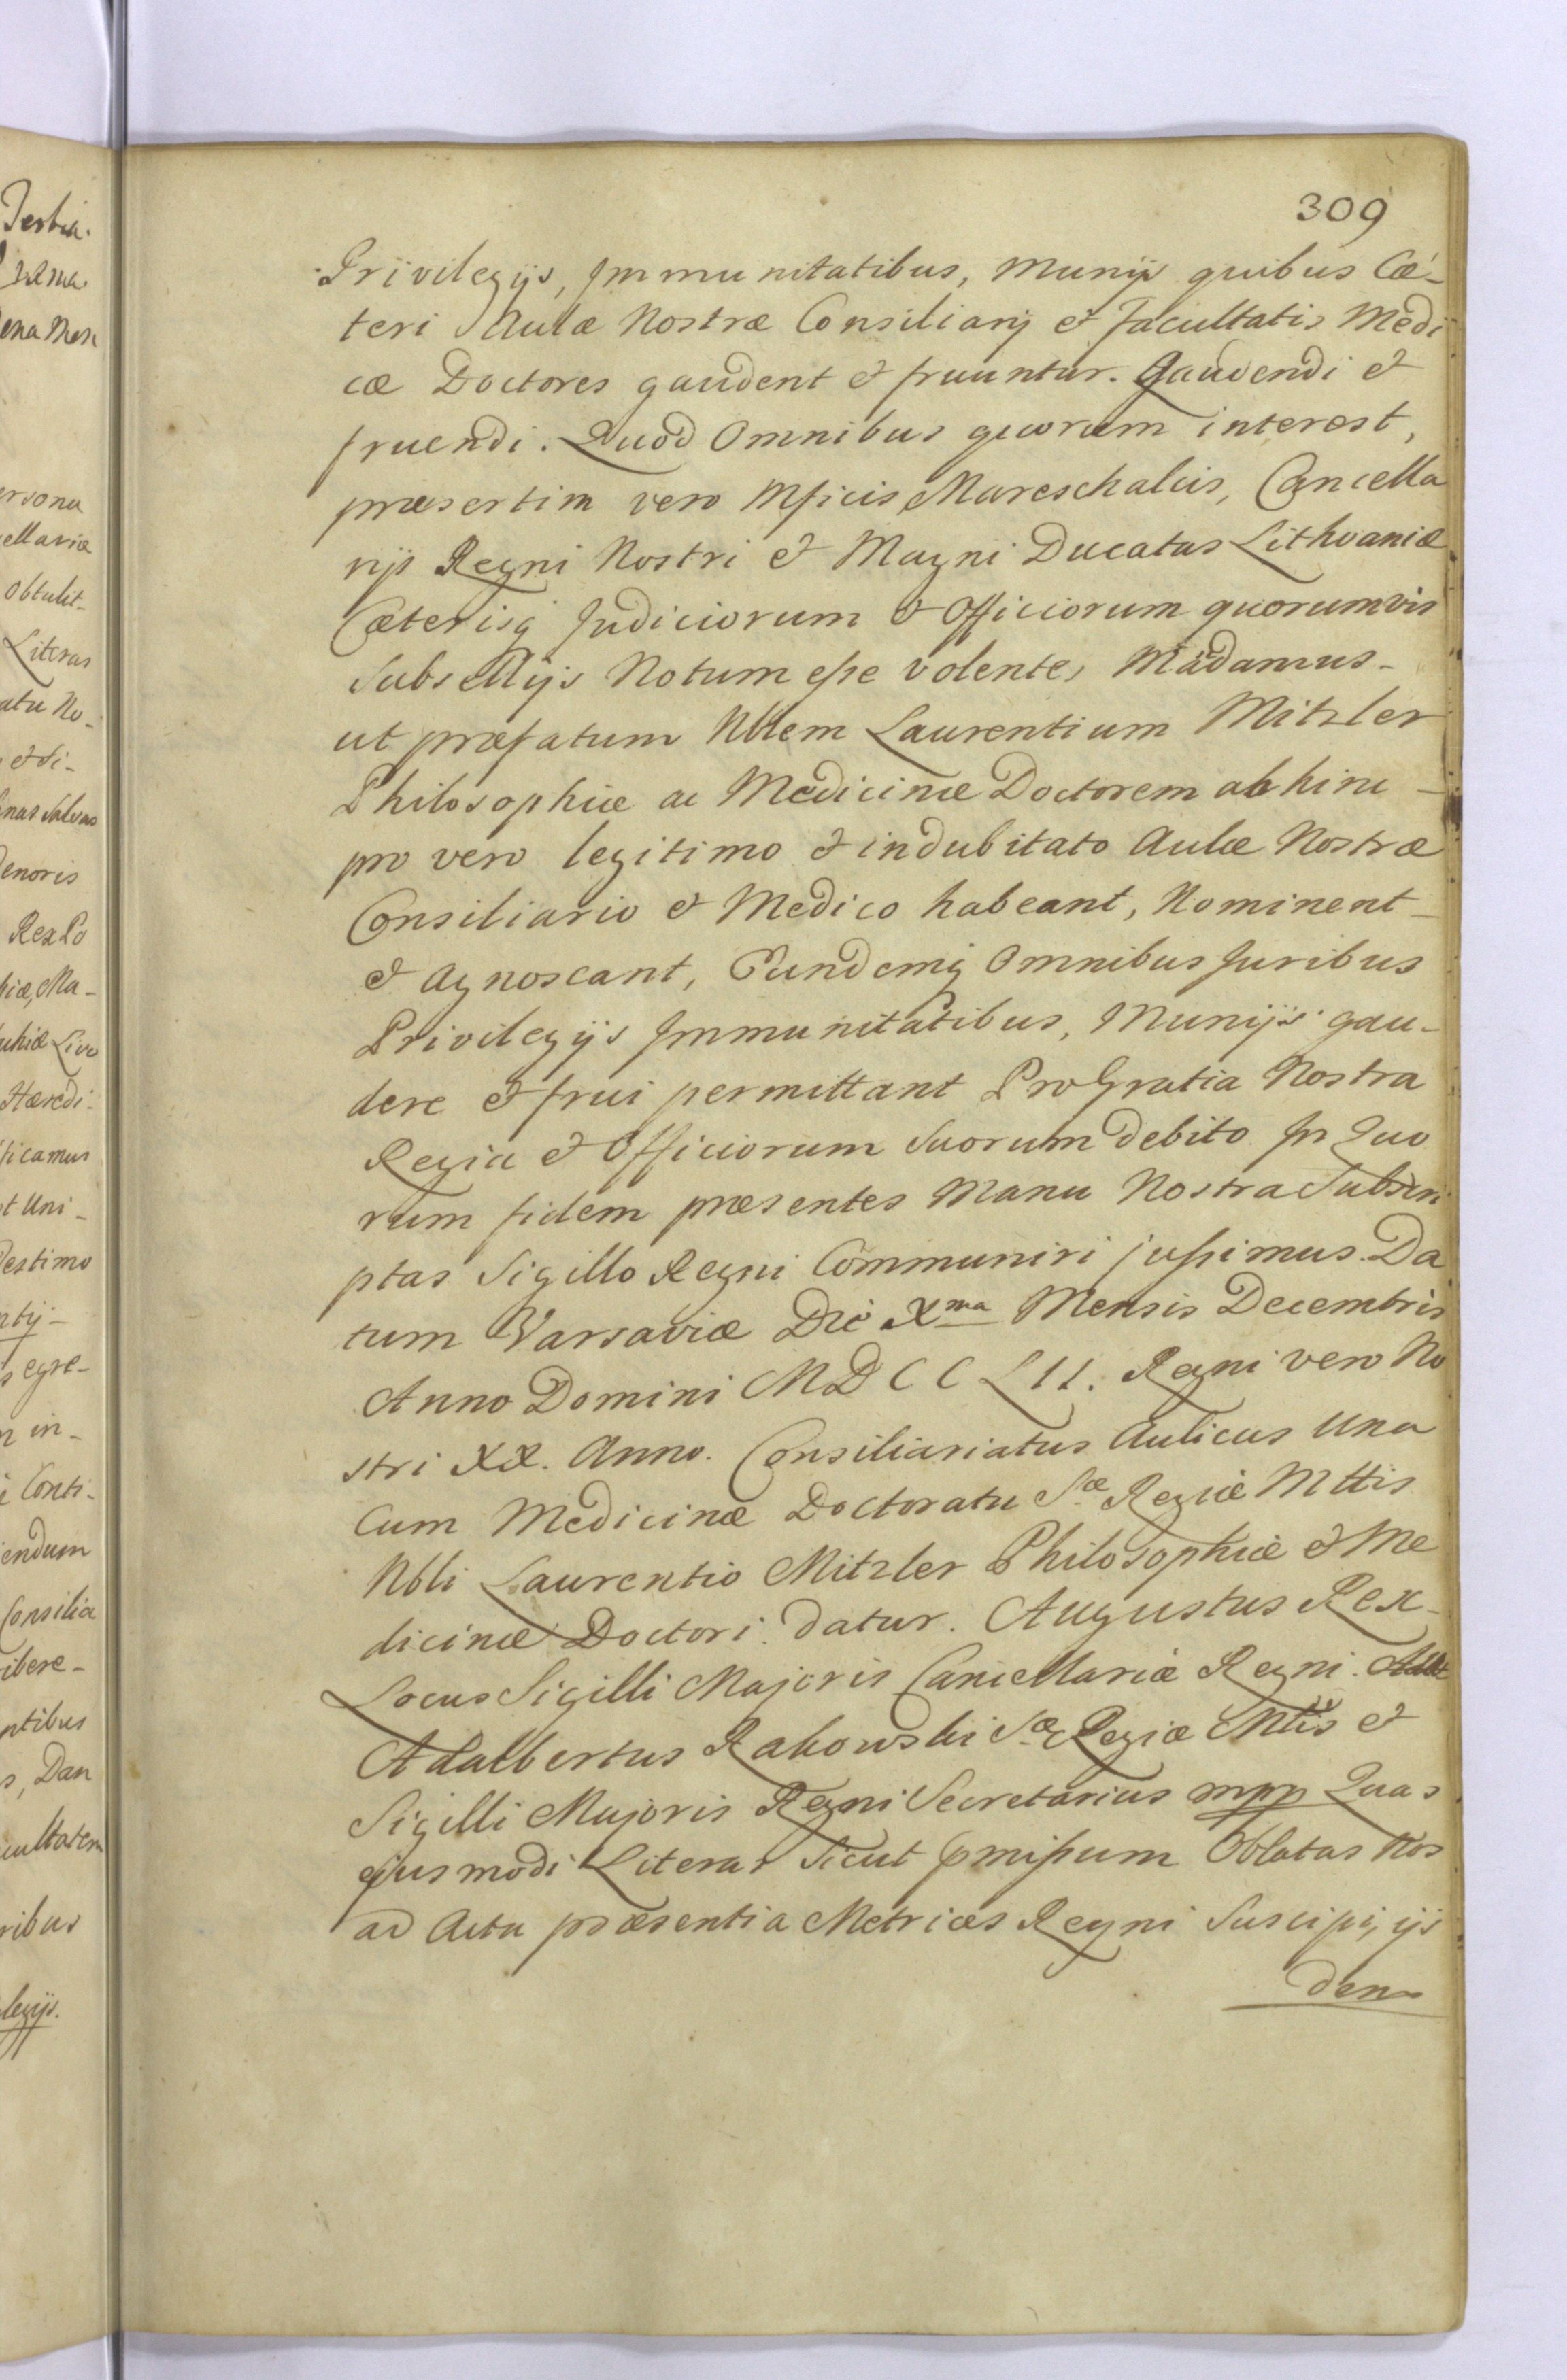 309
Privilegijs, Immunitatibus, Munijs quibus Cæ-
teri Aulæ Nostræ Consiliarij & Facultatis Medi
cæ Doctores gaudent & fruuntur. Gaudendi &
fruendi. Quod Omnibus quorum interest,
præsertim vero Mficis Mareschalcis, Cancella
rijs Regni Nostri & Magni Ducatus Lithvaniæ
Cæterisq Judiciorum & Officiorum quorumvis
Subsellijs Notum esse volentes Mãdamus-
ut præfatum Nblem Laurentium Mitzler
Philosophiæ ac Medicinæ Doctorem abhinc -
pro vero legitimo & indubitato Aulæ Nostræ
Consiliario & Medico habeant, Nominent-
& Agnoscant, Eundemq Omnibus Juribus
Privilegijs Immunitatibus, Munijs gau-
dere & frui permittant Pro Gratia Nostra
Regia & Officiorum Suorum debito. In Quo
rum fidem præsentes Manu Nostra Subscri
ptas Sigillo Regni Communiri jussimus. Da
tum Varsaviæ Die Xma Mensis Decembris
Anno Domini MDCCLII. Regni vero No
stri XX. Anno. Consiliariatus Aulicus Una
Cum Medicinæ Doctoratu Sæ Regiæ Mttis
Nbli Laurentio Mitzler Philosophiæ & Me
dicinæ Doctori datur. Augustus Rex-
Locus Sigilli Majoris Cancellariæ Regni.
Adalbertus Rakowski Sæ Regiæ Mtis &
Sigilli Majoris Regni Secretarius mpp Quas
ejusmodi Literas Sicut pmissum Oblatas Nos
ad Acta præsentia Metrices Regni Suscipi, ijs
dem